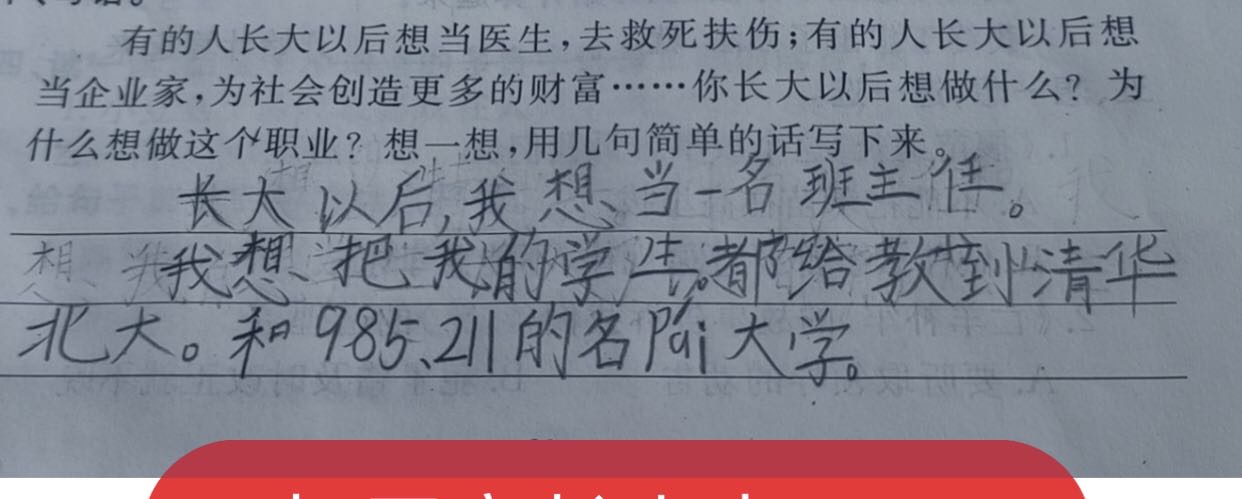 有的人长大以后想当医生，去救死扶伤；有的人长大以后想
当企业家，为社会创造更多的财富……你长大以后想做什么？为
什么想做这个职业？想一想，用几句简单的话写下来。
长大以后，我想当一名班主任。
我想把我的学生。都给教到清华
北大。和985、211的名pái大学。